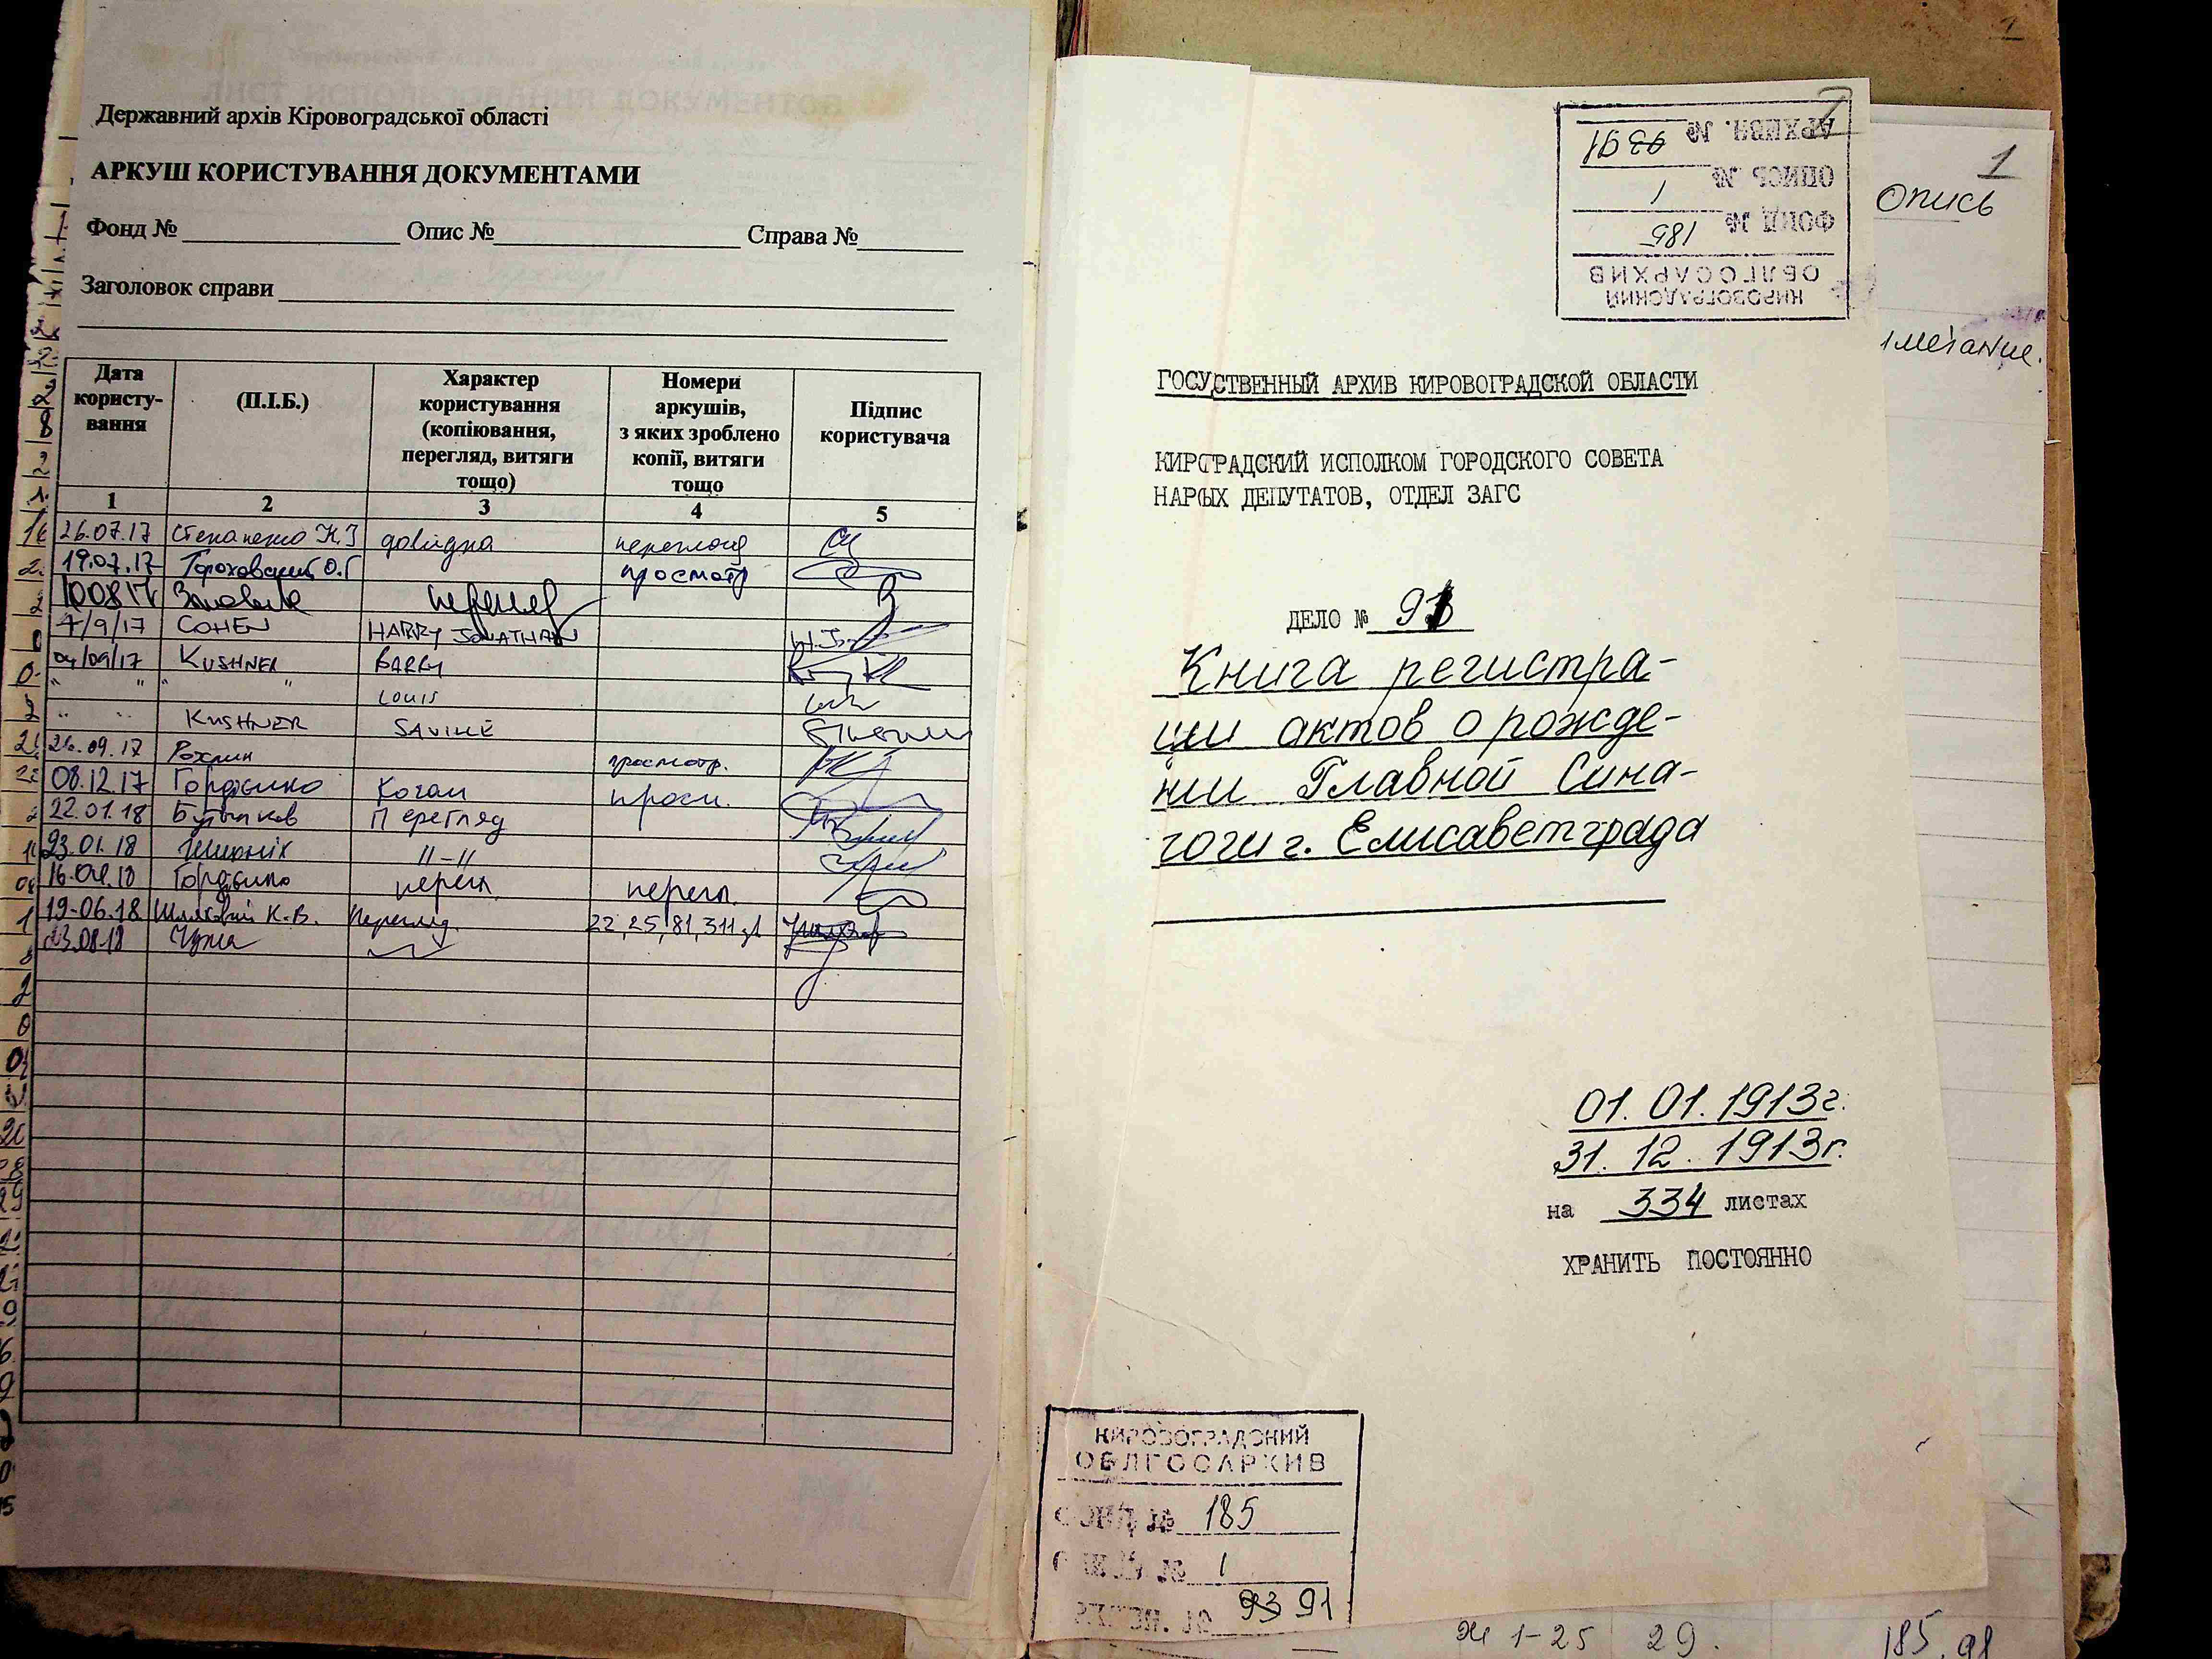 Державний архів Кіровоградської області
АРКУШ КОРИСТУВАННЯ ДОКУМЕНТАМИ
Фонд № Опис № Справа №
Заголовок справи
Дата користу-вання (П.І.Б.) Характер користування (копіювання, перегляд, витяги тощо) Номери аркушів, з яких зроблено копії, витяги тощо Підпис користувача
1 2 3 4 5
26.07.17 Степаненко К.І довідка перегляд
19.07.17 Гороховський О.Г просмотр
100817
7/9/17 COHEN HARRY JONATHAN
04/09/17 KUSHNER BARRY
" " " " LOUIS
" " KUSHNER SAVILLE
26.09.17 Рохлин просмотр.
08.12.17 Гордієнко Коган просм.
22.01.18 Перегляд
23.01.18 "-"
16.04.18 Гордієнко перегл. перегл.
19-06.18 К.В. Перегляд. 22, 25, 81, 311
23.08.18
1
1
Опись
мечание.
КИРОВОГРАДСКИЙ
ОБЛГОСАРХИВ
ФОНД № 185
ОПИСЬ № 1
АРХИВН. № 93 91
ГОСУСТВЕННЫЙ АРХИВ КИРОВОГРАДСКОЙ ОБЛАСТИ
КИРГРАДСКИЙ ИСПОЛКОМ ГОРОДСКОГО СОВЕТА
НАРЫХ ДЕПУТАТОВ, ОТДЕЛ ЗАГС
ДЕЛО № 91
Книга регистра-
ции актов о рожде-
нии Главной Сина-
гоги г. Елисаветграда
01.01.1913г.
31.12.1913г.
на 334 листах
ХРАНИТЬ ПОСТОЯННО
КИРОВОГРАДСКИЙ
ОБЛГОСАРХИВ
ФОНД № 185
ОПИСЬ № 1
АРХИВН. № 93 91
1-25 29. 185.